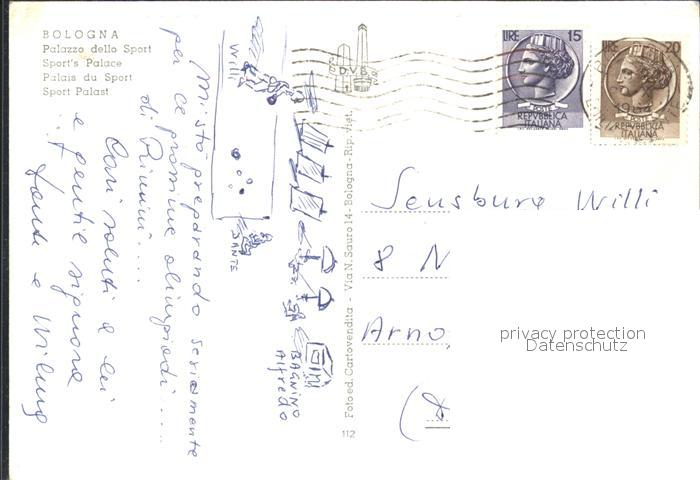 BOLOGNA
Palazzo dello Sport
Sport's Palace
Palais du Sport
Sport Palast
Mi sto preparando seriamente
per le prossime olimpiadi....
di Rimini....
Cari saluti a lei
e gentile signora
Willi
DANTE
BAGNINO
Alfredo
Fotoed. Cartovendita - Via N. Sauro 14 - Bologna - Rip. viet.
112
D.V.B.
LIRE 15
POSTE
REPVBBLICA
ITALIANA
LIRE 20
POSTE
REPVBBLICA
ITALIANA
Sensburg Willi
8 N
Arno
privacy protection
Datenschutz